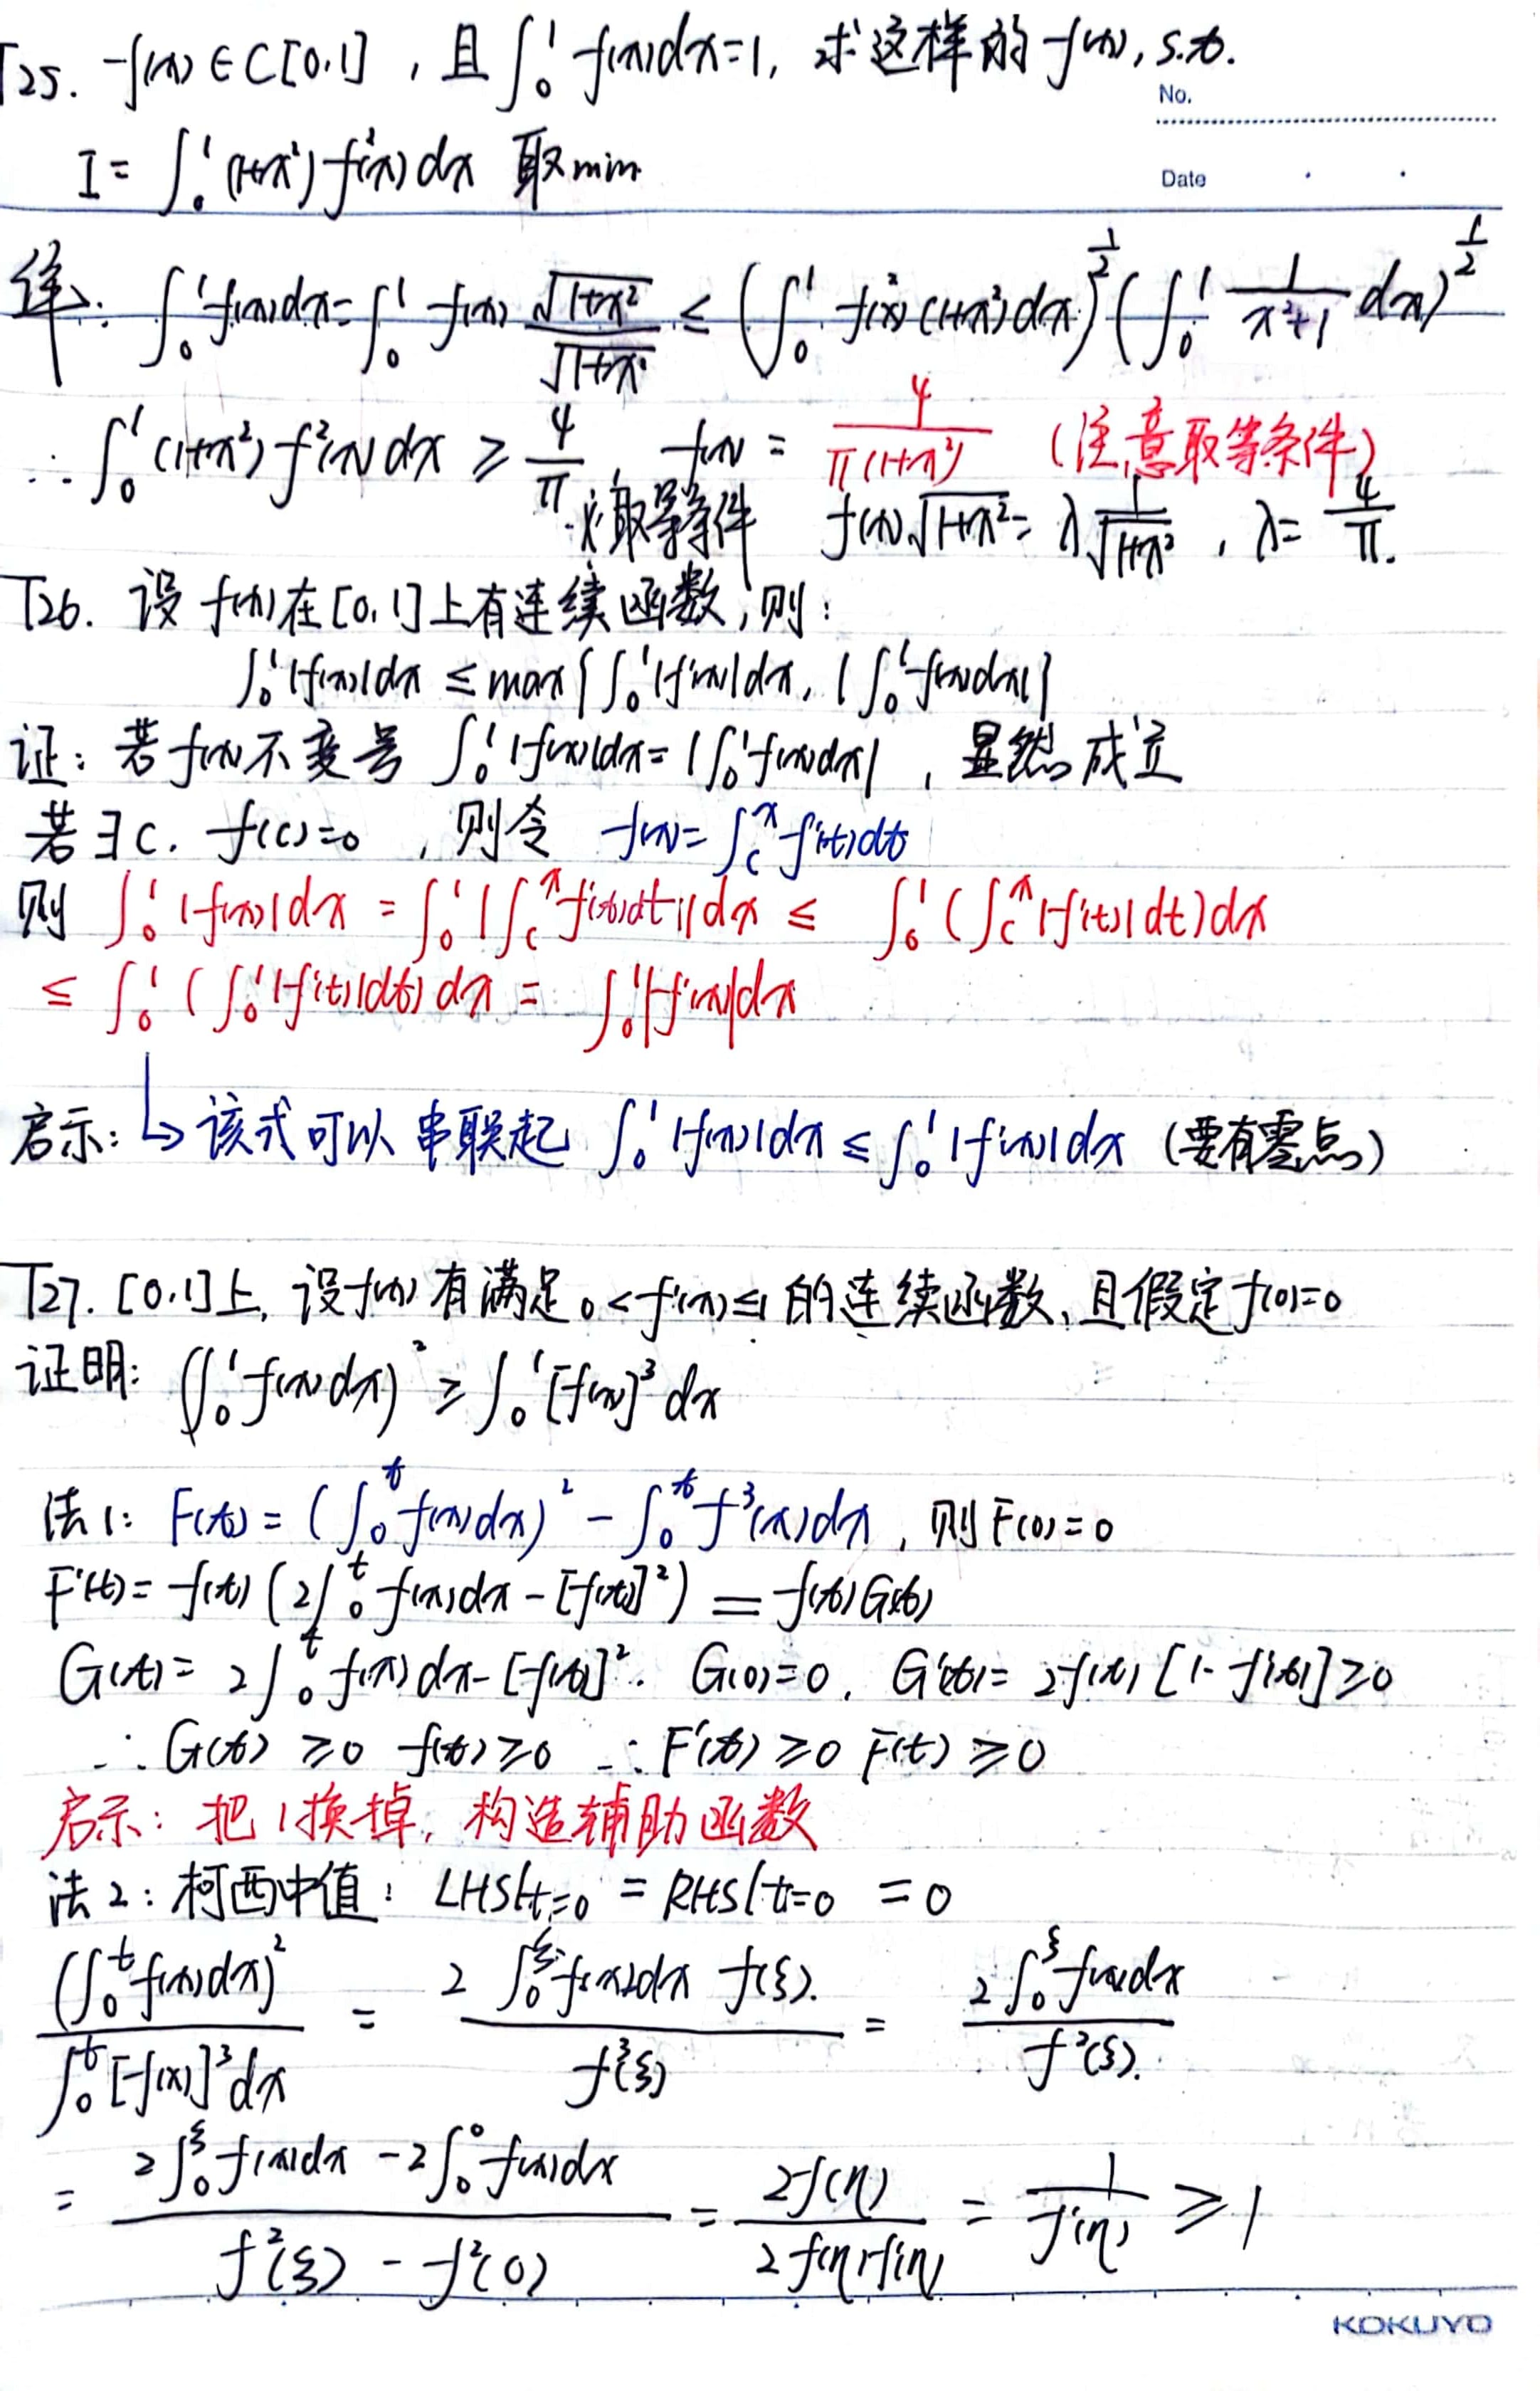 T25. f(x)∈C[0,1],且∫₀¹f(x)dx=1,求这样的f(x),s.t.
No.
I=∫₀¹(1+x²)f²(x)dx 取min
Date
解: ∫₀¹f(x)dx=∫₀¹f(x)√(1+x²)/√(1+x²) ≤ (∫₀¹f²(x)(1+x²)dx)^(1/2) (∫₀¹ 1/(x²+1) dx)^(1/2)
∴∫₀¹(1+x²)f²(x)dx ≥ 4/π, f(x)= 4/(π(1+x²)) (注意取等条件)
取等条件 f(x)√(1+x²)=λ 1/√(1+x²), λ=4/π.
T26. 设f(x)在[0,1]上有连续函数,则:
∫₀¹|f(x)|dx ≤ max{∫₀¹|f'(x)|dx, |∫₀¹f(x)dx|}
证: 若f(x)不变号 ∫₀¹|f(x)|dx=|∫₀¹f(x)dx|, 显然成立
若∃c. f(c)=0, 则令 f(x)=∫_c^x f'(t)dt
则 ∫₀¹|f(x)|dx = ∫₀¹|∫_c^x f'(t)dt|dx ≤ ∫₀¹(∫_c^x|f'(t)|dt)dx
≤ ∫₀¹(∫₀¹|f'(t)|dt)dx = ∫₀¹|f'(x)|dx
启示: ↳该式可以串联起 ∫₀¹|f(x)|dx ≤ ∫₀¹|f'(x)|dx (要有零点)
T27. [0,1]上,设f(x)有满足0<f'(x)≤1的连续函数,且假定f(0)=0
证明: (∫₀¹f(x)dx)² ≥ ∫₀¹[f(x)]³dx
法1: F(t)=(∫₀ᵗf(x)dx)² - ∫₀ᵗf³(x)dx, 则F(0)=0
F'(t)=f(t)(2∫₀ᵗf(x)dx-[f(t)]²) = f(t)G(t)
G(t)=2∫₀ᵗf(x)dx-[f(t)]². G(0)=0, G'(t)=2f(t)[1-f'(t)]≥0
∴G(t)≥0 f(t)≥0 ∴F'(t)≥0 F(t)≥0
启示: 把1换掉,构造辅助函数
法2: 柯西中值: LHS|t=0 = RHS|t=0 = 0
(∫₀ᵗf(x)dx)²/∫₀ᵗ[f(x)]³dx = 2∫₀^ξ f(x)dx f(ξ)/f³(ξ) = 2∫₀^ξ f(x)dx/f²(ξ).
= (2∫₀^ξ f(x)dx-2∫₀⁰f(x)dx)/(f²(ξ)-f²(0)) = 2f(η)/(2f(η)f'(η)) = 1/f'(η) ≥1
KOKUYO